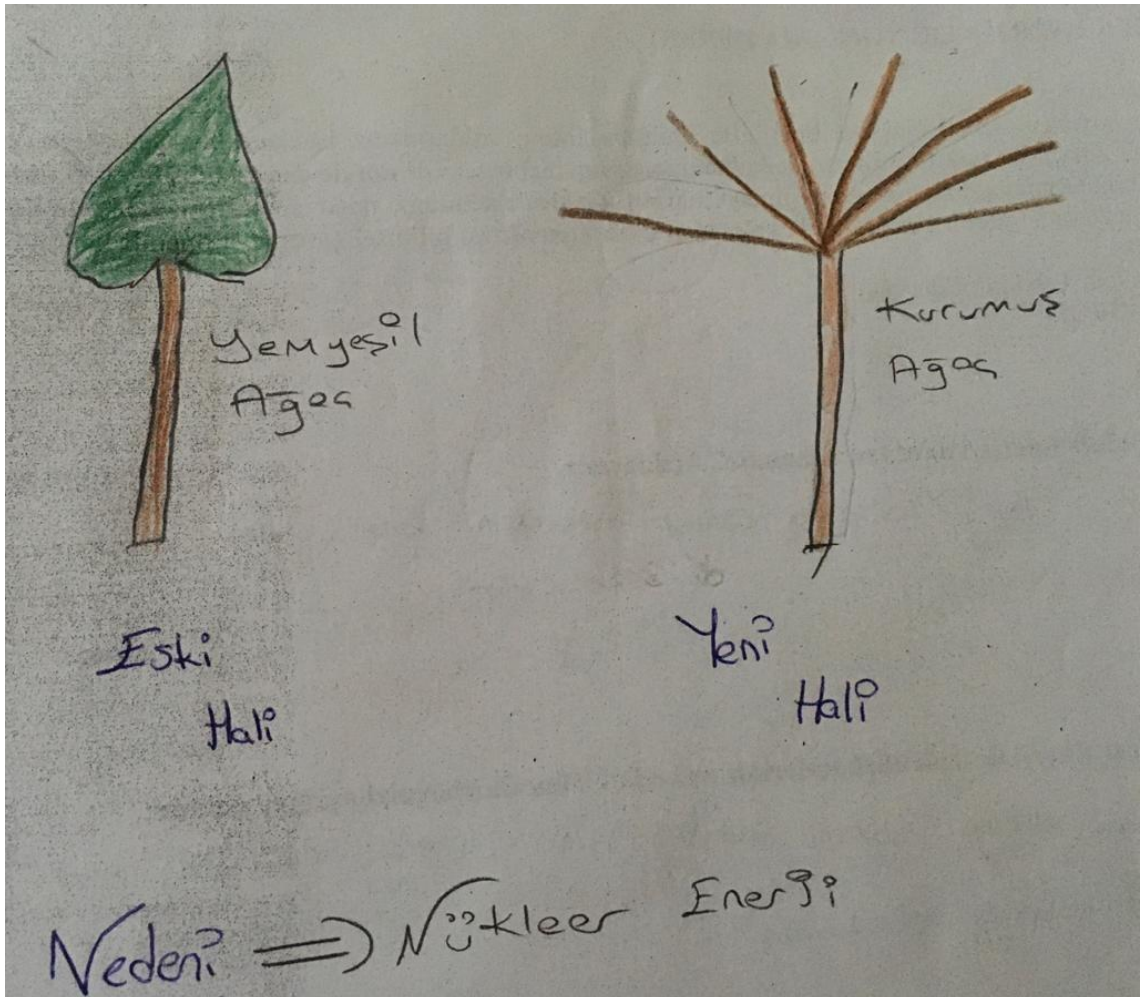 Yemyeşil
Ağaç
Kurumuş
Ağaç
Eski
Hali
Yeni
Hali
Nedeni ⇒ Nükleer Enerji